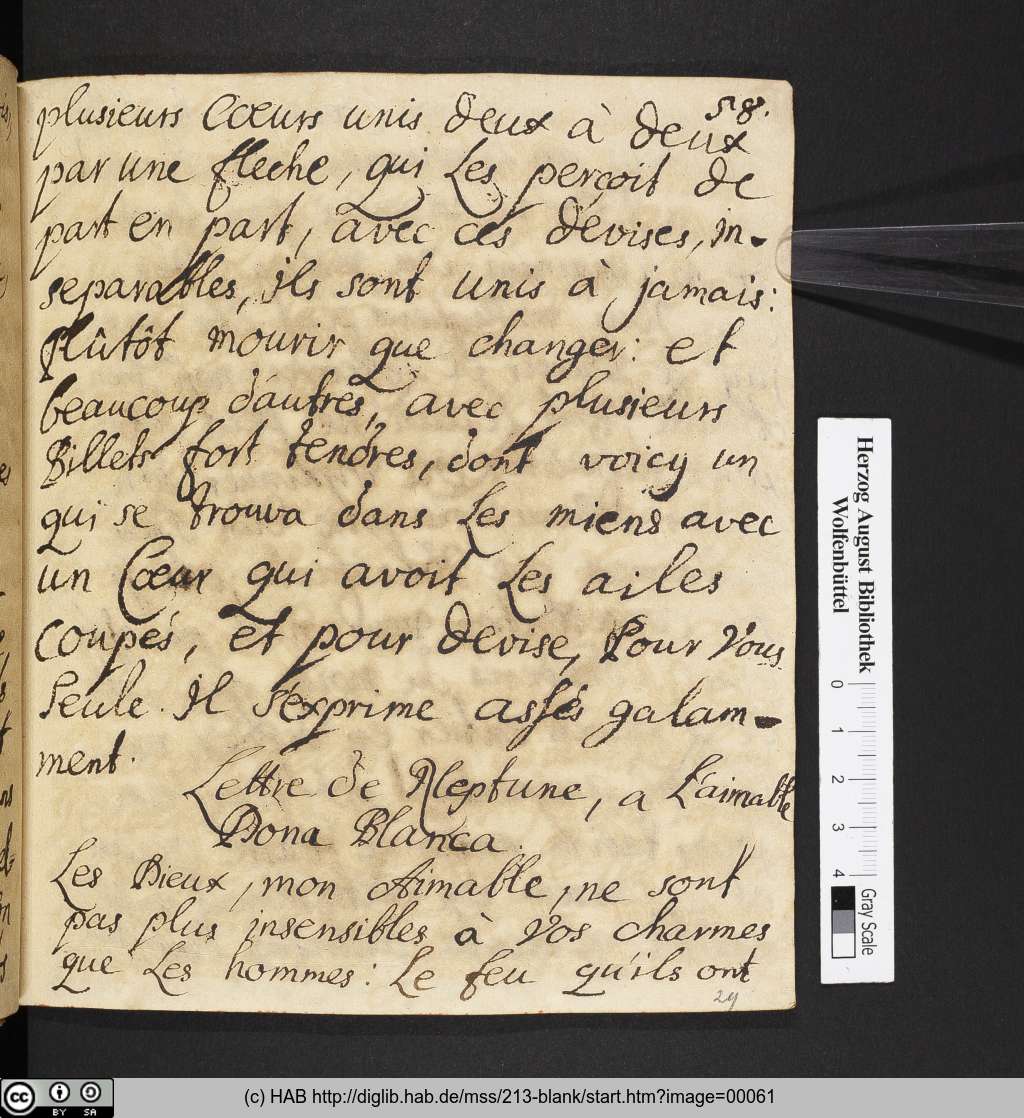 58.
plusieurs Cœurs unis deux à deux
par une fleche, qui Les perçoit de
part en part, avec ces dévises, in-
separables, ils sont unis à jamais:
Plûtôt mourir que changer: et
beaucoup d'autres, avec plusieurs
Billets fort tendres, dont voicy un
qui se trouva dans Les miens avec
un Cœur qui avoit Les ailes
coupés, et pour devise, Pour Vous
Seule. Il s'exprime assés galam-
ment.
Lettre de Neptune, a L'aimable
Dona Blanca.
Les Dieux, mon Aimable, ne sont
pas plus insensibles à Vos charmes
que Les hommes: Le feu qu'ils ont
29
Herzog August Bibliothek
Wolfenbüttel
0 1 2 3 4
Gray Scale
cc BY SA
(c) HAB http://diglib.hab.de/mss/213-blank/start.htm?image=00061